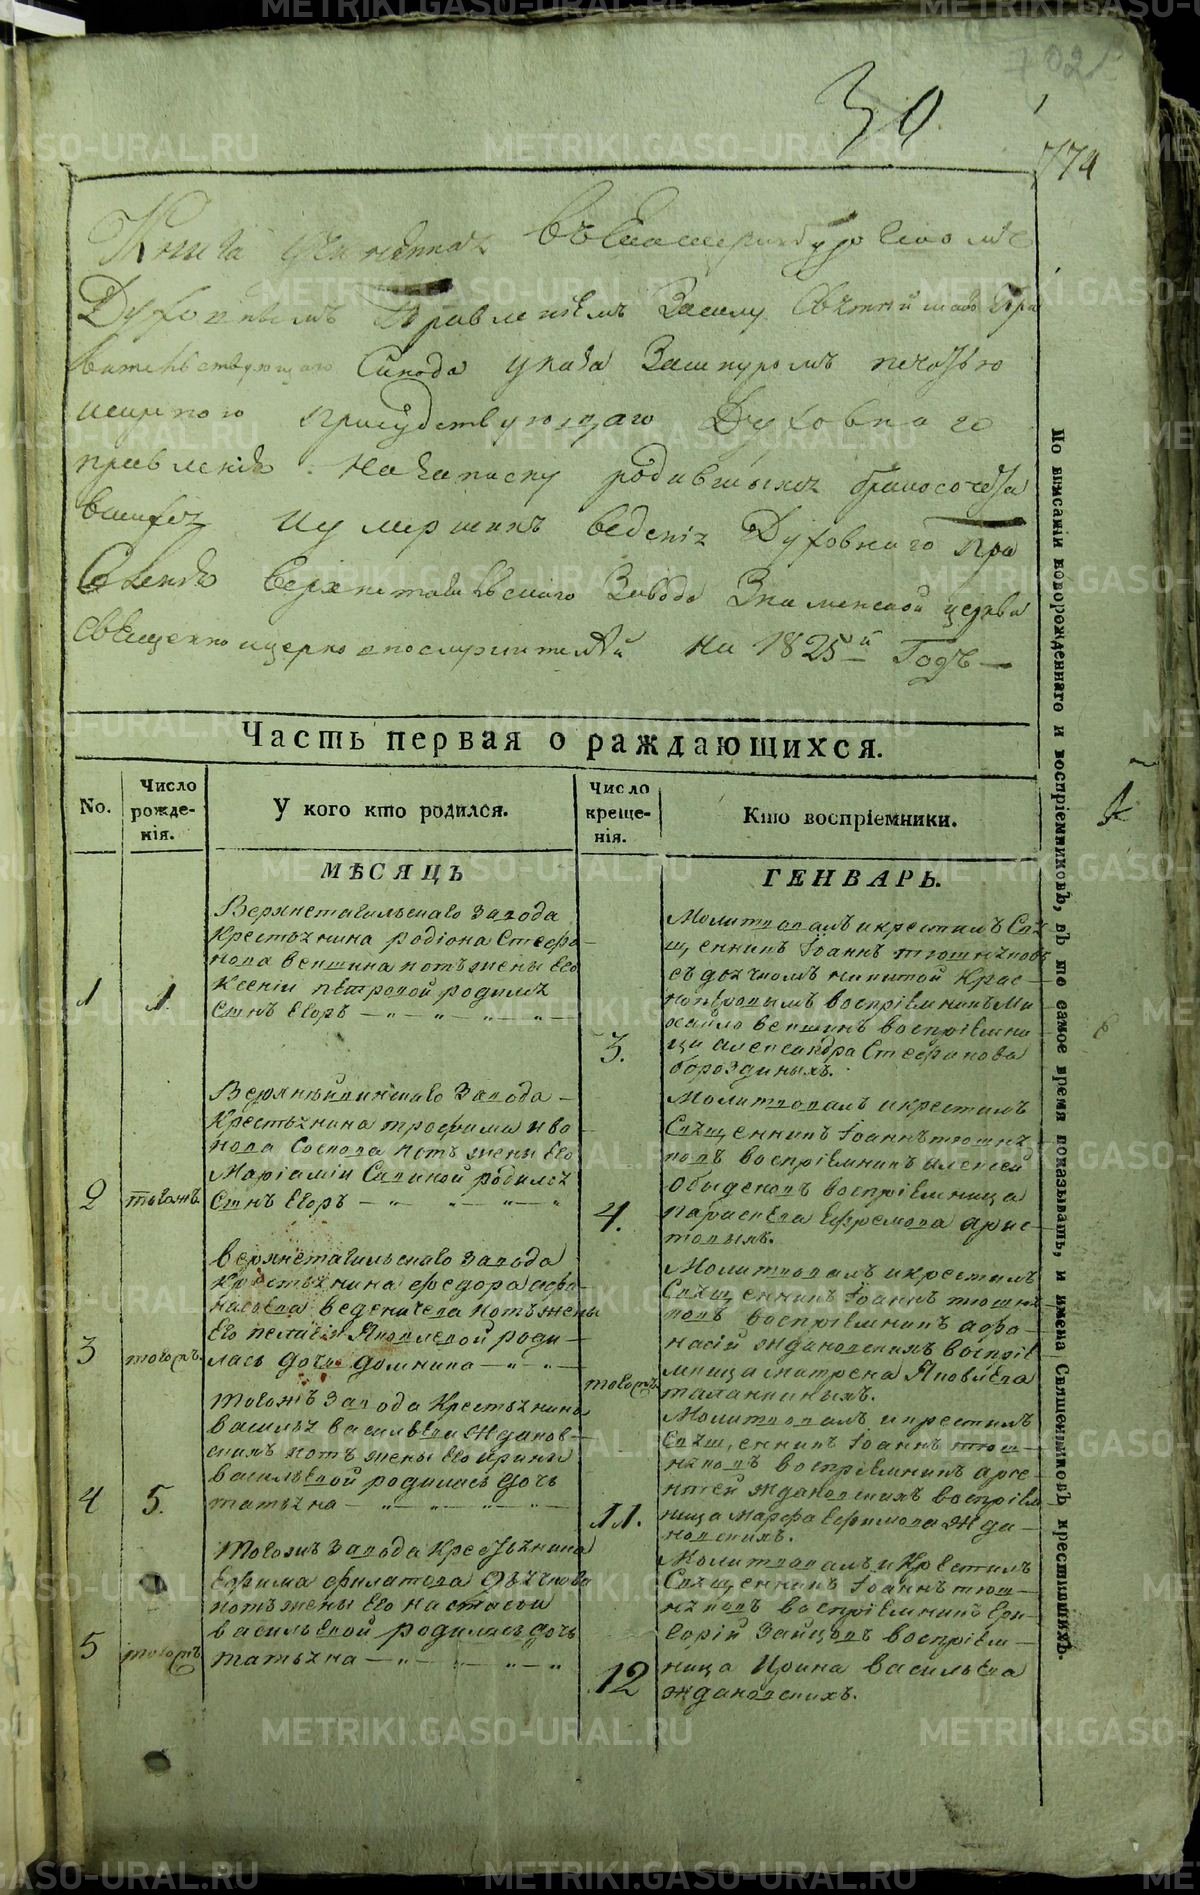 30
702
774
Книга учиненная въ Екатеринбургскомъ
Духовнымъ Правленіемъ Засилу Святѣйшаго Пра
вительствующаго Синода указа Зашнуромъ печатью
присудствующаго Духовнаго
правленія На записку родившихся бракосочета
вшихся Иумершихъ веденія Духовнаго Пра
вленія Верхнетагильскаго Завода Знаменской церкви
священно ицерковнослужителей на 1825й Годъ —
Часть первая о раждающихся.
No.
Число рожде-нія.
У кого кто родился.
Число креще-нія.
Кто воспріемники.
МѢСЯЦЪ
ГЕНВАРЬ.
1
1.
Верхнетагильскаго Завода
Крестьянина Родіона Стефа-
нова Вепшина нотъ жены Его
Ксеніи Петровой родился
Сынъ Егоръ
3.
Молитвовалъ икрестилъ Свя-
щенникъ Іоаннъ тюшняковъ
съ дьячкомъ никитой Крас-
ноперовымъ воспріемникъ Ми
хайло вепшинъ воспріемни
ца александра Стефанова
бороздиныхъ.
2
тогожъ
Верхнейвинскаго Завода —
Крестьянина трофима ива
нова Соснова нотъ жены Его
Маріамии Савиной родился
Сынъ Егоръ
4.
Молитвовалъ икрестилъ
Священникъ Іоаннъ тюшня
ковъ воспріемникъ алексей
обыденовъ воспріемница
параскева Ефремова арис-
товыхъ.
3
тогожъ.
верхнетагильскаго Завода
Крестьянина федора афа-
насьева веденичева нотъ жены
Его пелагіи Яковлевой роди —
лась дочь домнина
тогожъ
Молитвовалъ икрестилъ
Священникъ Іоаннъ тюшня-
ковъ воспріемникъ афа-
насій ждановскихъ воспріе-
мница матрена Яковлева
таланкиныхъ.
4
5.
тогожъ Завода Крестьянина
василья васильева жданов-
скихъ нотъ жены Его ирины
васильевой родилась дочь
татьяна
11.
Молитвовалъ икрестилъ
Священникъ Іоаннъ тюш-
няковъ воспріемникъ арсе-
нтей ждановскихъ воспріем
ница марфа Ефимова жда-
новскихъ.
5
тогожъ
тогожъ Завода Крестьянина
Ефима филатова дьячкова
нотъ жены Его настасьи
васильевой родилась дочь
татьяна
12
Молитвовалъ и Крестилъ
Священникъ Іоаннъ тюш-
няковъ воспріемникъ гри-
горій Зайцовъ воспріем —
ница Ирина васильева
ждановскихъ.
По вписаніи новорожденнаго и воспріемниковъ, въ то самое время показывать, и имена Священниковъ крестившихъ.
METRIKI.GASO-URAL.RU